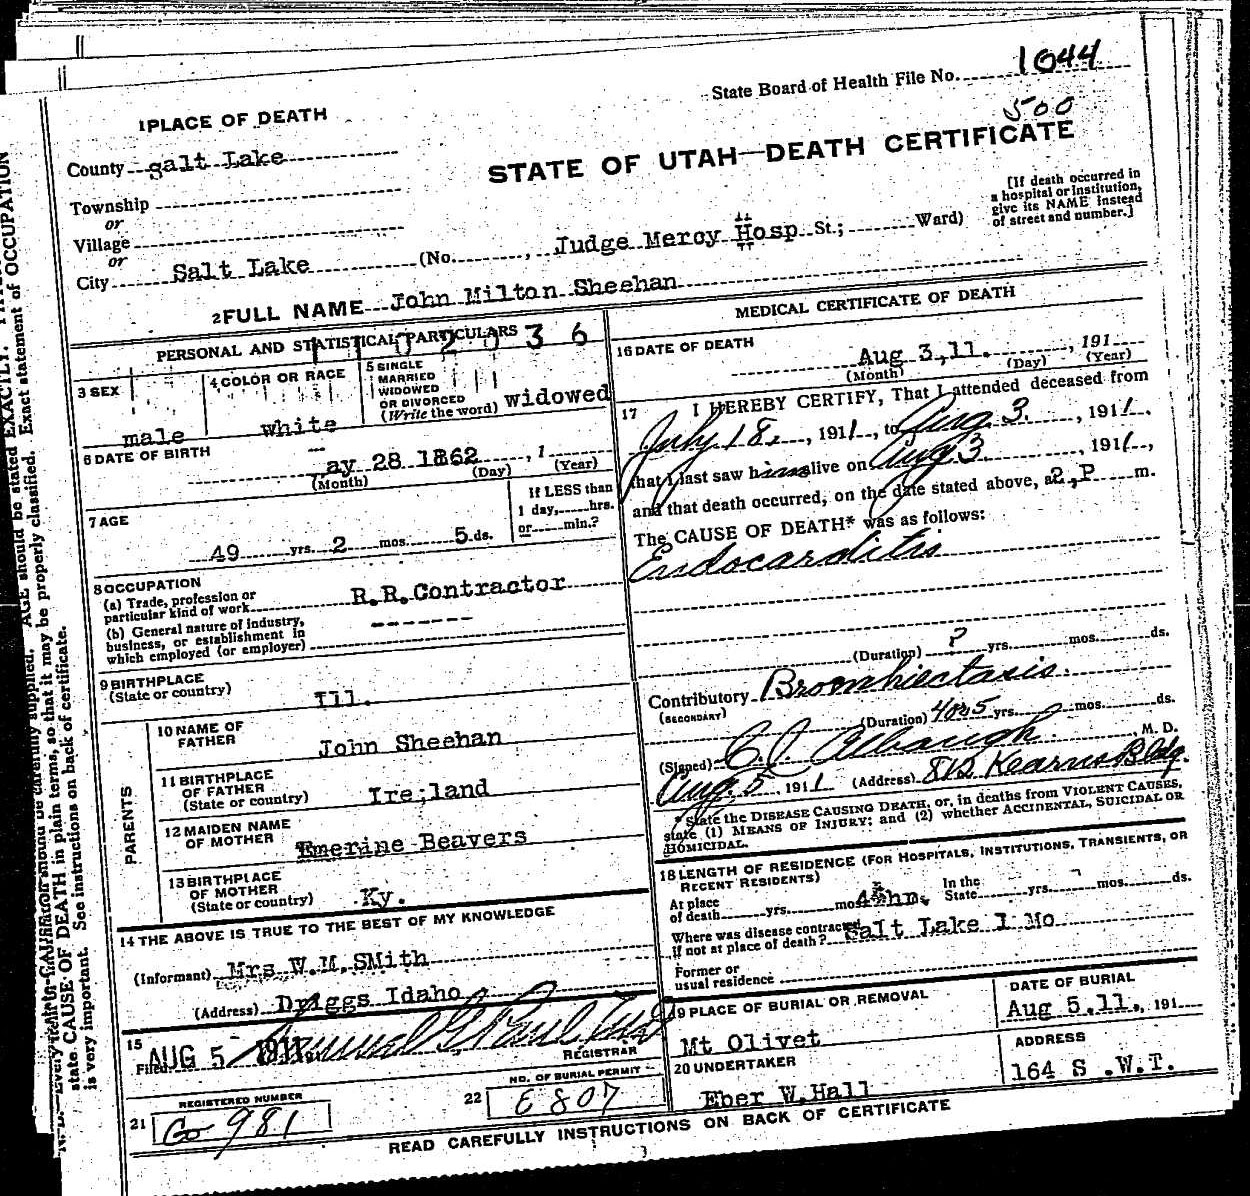 State Board of Health File No. 1044
500
1 PLACE OF DEATH
STATE OF UTAH—DEATH CERTIFICATE
County Salt Lake
Township
or
Village
or
City Salt Lake (No. , Judge Mercy Hosp St.; Ward)
[If death occurred in
a hospital or institution,
give its NAME instead
of street and number.]
2 FULL NAME John Milton Sheehan
PERSONAL AND STATISTICAL PARTICULARS
3 SEX
male
4 COLOR OR RACE
white
5 SINGLE
MARRIED
WIDOWED
OR DIVORCED
(Write the word) widowed
6 DATE OF BIRTH
ay 28 1862 , 1
(Month) (Day) (Year)
7 AGE
49 yrs. 2 mos. 5 ds.
If LESS than
1 day, hrs.
or min.?
8 OCCUPATION
(a) Trade, profession or
particular kind of work R.R.Contractor
(b) General nature of industry,
business, or establishment in
which employed (or employer)
9 BIRTHPLACE
(State or country) Ill.
PARENTS
10 NAME OF
FATHER John Sheehan
11 BIRTHPLACE
OF FATHER
(State or country) Ire;land
12 MAIDEN NAME
OF MOTHER Emerine Beavers
13 BIRTHPLACE
OF MOTHER
(State or country) Ky.
14 THE ABOVE IS TRUE TO THE BEST OF MY KNOWLEDGE
(Informant) Mrs W.M.SMith
(Address) Driggs Idaho
15
Filed AUG 5 1911
REGISTRAR
REGISTERED NUMBER
21 Co 981
NO. OF BURIAL PERMIT
22 E 807
MEDICAL CERTIFICATE OF DEATH
16 DATE OF DEATH
Aug 3,11. , 191
(Month) (Day) (Year)
17 I HEREBY CERTIFY, That I attended deceased from
July 18, , 1911, to Aug 3. , 1911.
that I last saw him alive on Aug 3 , 1911,
and that death occurred, on the date stated above, a2,P m.
The CAUSE OF DEATH* was as follows:
Endocarditis
(Duration) ? yrs. mos. ds.
Contributory Bronchiectasis.
(SECONDARY)
(Duration) 4 or 5 yrs. mos. ds.
(Signed) M. D.
Aug. 5 1911 (Address) Kearns Bldg.
* State the DISEASE CAUSING DEATH, or, in deaths from VIOLENT CAUSES,
state (1) MEANS OF INJURY; and (2) whether ACCIDENTAL, SUICIDAL OR
HOMICIDAL.
18 LENGTH OF RESIDENCE (FOR HOSPITALS, INSTITUTIONS, TRANSIENTS, OR
RECENT RESIDENTS)
At place
of death yrs. mos
In the
State yrs. mos. ds.
Where was disease contracted
if not at place of death? Salt Lake 1 Mo
Former or
usual residence
19 PLACE OF BURIAL OR REMOVAL
Mt Olivet
DATE OF BURIAL
Aug 5.11., 191
20 UNDERTAKER
Eber W.Hall
ADDRESS
164 S .W.T.
READ CAREFULLY INSTRUCTIONS ON BACK OF CERTIFICATE
AGE should be stated EXACTLY.
state CAUSE OF DEATH in plain terms, so that it may be properly classified. Exact statement of OCCUPATION
is very important. See instructions on back of certificate.